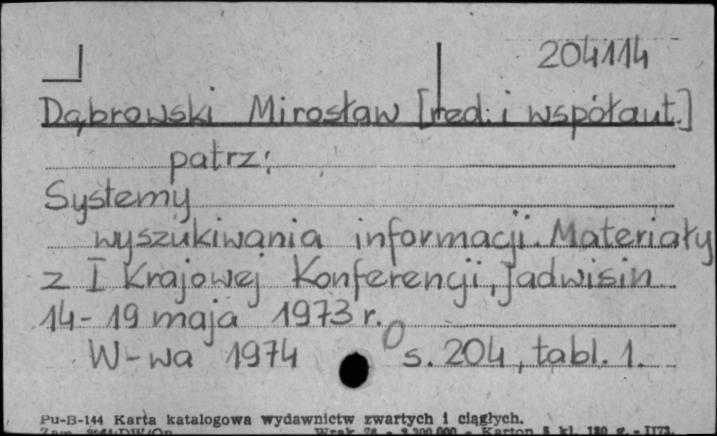 204114
Dąbrowski Mirosław [red. i współaut.]
patrz:
Systemy
wyszukiwania informacji. Materiały
z I Krajowej Konferencji, Jadwisin
14-19 maja 1973 r.
W-wa 1974 s. 204, tabl. 1.
Pu-B-144 Karta katalogowa wydawnictw zwartych i ciągłych.
Karton kl. 180 g.